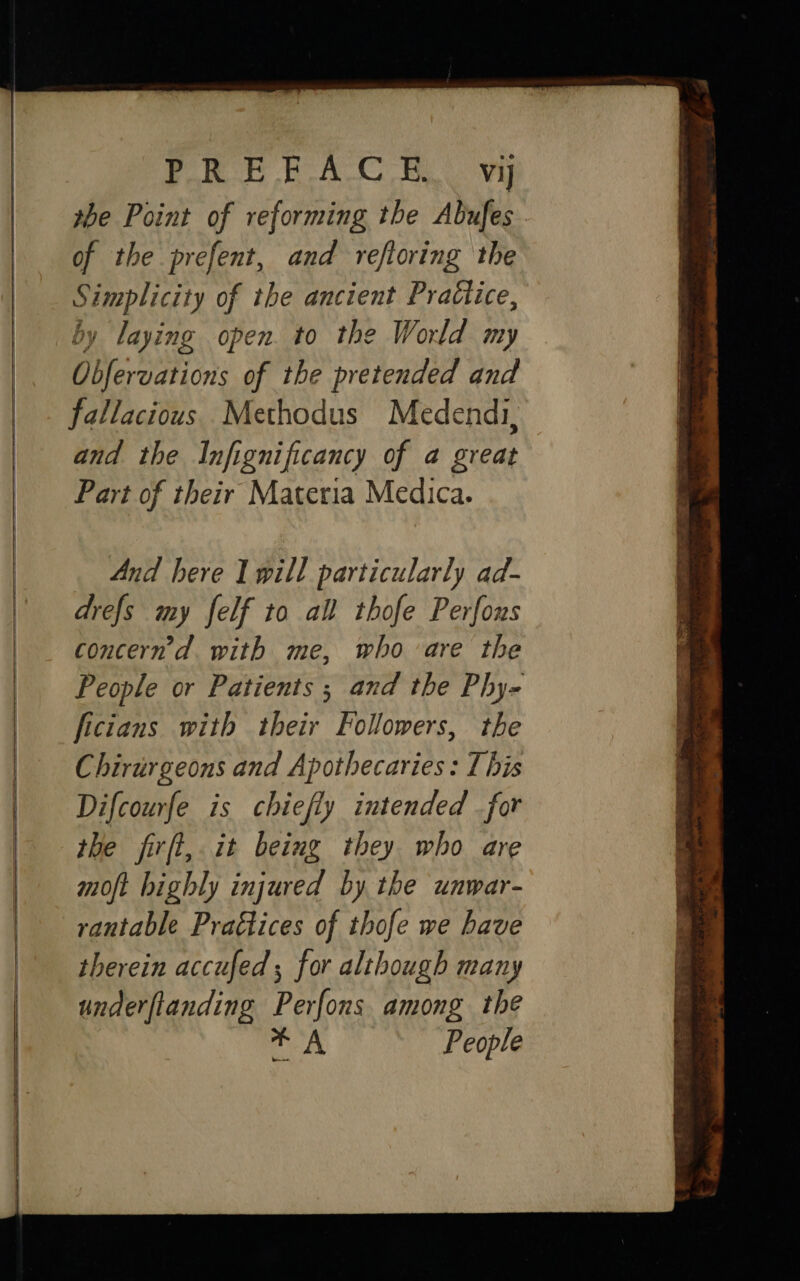 PREFACE. vij
the Point of reforming the Abuſes
of the preſent, and reſtoring the
Simplicity of the ancient Practice,
by laying open to the World my
Obſervations of the pretended and
fallacious Methodus Medendi,
and the Inſignificancy of a great
Part of their Materia Medica.
And here I will particularly ad-
dreſs my ſelf to all thoſe Perſons
concern'd with me, who are the
People or Patients; and the Phy-
ſicians with their Followers, the
Chirurgeons and Apothecaries: This
Diſcourſe is chiefly intended for
the firſt, it being they who are
moſt highly injured by the unwar-
rantable Practices of thoſe we have
therein accuſed; for although many
underſtanding Perſons among the
* A People